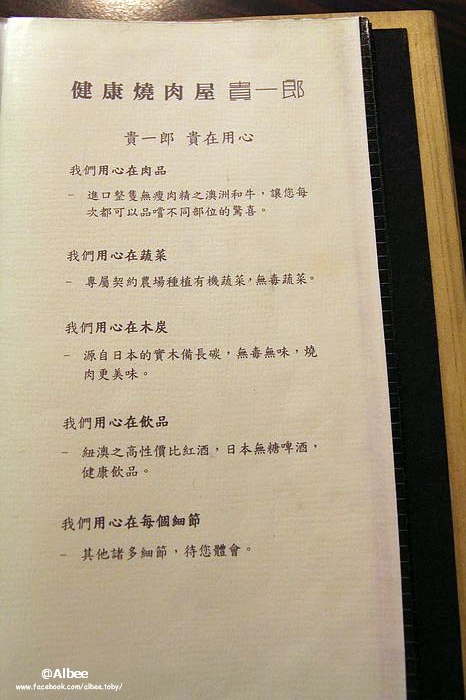 健康燒肉屋 貴一郎
貴一郎 貴在用心
我們用心在肉品
- 進口整隻無瘦肉精之澳洲和牛，讓您每
次都可以品嚐不同部位的驚喜。
我們用心在蔬菜
- 專屬契約農場種植有機蔬菜，無毒蔬菜。
我們用心在木炭
- 源自日本的實木備長碳，無毒無味，燒
肉更美味。
我們用心在飲品
- 紐澳之高性價比紅酒，日本無糖啤酒，
健康飲品。
我們用心在每個細節
- 其他諸多細節，待您體會。
@Albee
www.facebook.com/albee.toby/